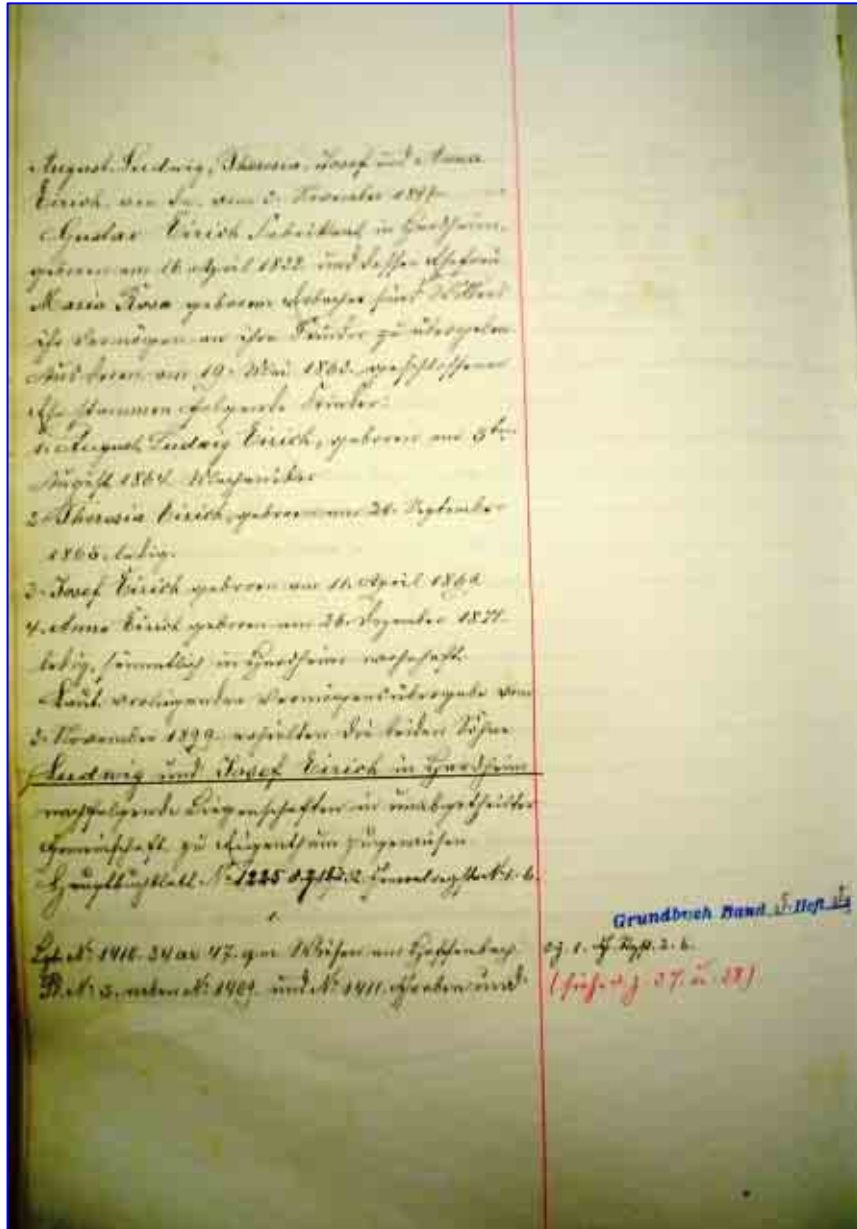 August Ludwig, Theresia, Josef und Anna
Eirich, vom November
Gustav Eirich Fabrikant in Hardheim,
geboren am 16 April 1822 und dessen Ehefrau
Maria Rosa geborene sind Willens
ihr Vermögen an ihre Kinder zu übergeben.
Aus deren am 19. Mai 1863. geschlossener
Ehe stammen folgende Kinder:
1. August Ludwig Eirich, geboren am 3ten
August 1864. Mechaniker
2. Theresia Eirich, geboren am September
1865. ledig.
3. Josef Eirich geboren am 11. April
4. Anna Eirich geboren am 26. Dezember 1871.
ledig, sämmtlich in Hardheim wohnhaft.
Laut vorliegender Vermögensübergabe vom
3. November 1899. erhielten die beiden Söhne
Ludwig und Josef Eirich in Hardheim
nachfolgende Liegenschaften in unabgetheilter
Gemeinschaft zu Eigenthum zugewiesen
Hauptbuchblatt No 1225 No 1. 6.
1.
Lgb. No 1410. 34 ar 47. qm Wiesen am
No 3. neben No 1409. und No 1411. Graben und
Grundbuch Band 5 Heft
O.Z. 1. 2. 6.
(siehe O.Z. 37. u. 38)